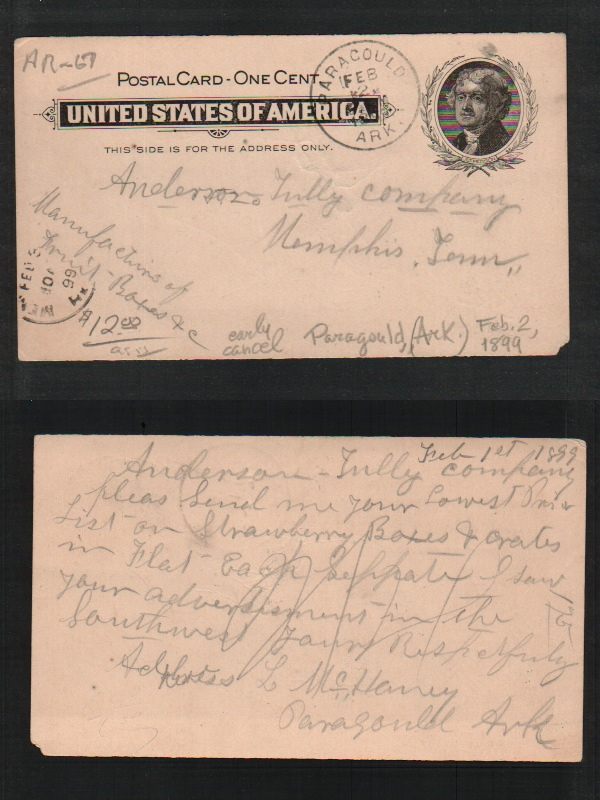 AR-67
POSTAL CARD - ONE CENT.
UNITED STATES OF AMERICA.
THIS SIDE IS FOR THE ADDRESS ONLY.
PARAGOULD
FEB
2
ARK.
Anderson-Tully company
Memphis. Tenn,,
Manufacturs of
Fruit-Boxes &c
FEB
99
$12.00
early
cancel
Paragould, (Ark.)
Feb. 2,
1899
Feb 1st 1899
Anderson-Tully company
pleas Send me your Lowest
List on Strawberry Boxes & crates
in Flat Each Seppate I saw
your advertisment in the
Southwest Yours Respctfuly
Address L McHaney
Paragould Ark